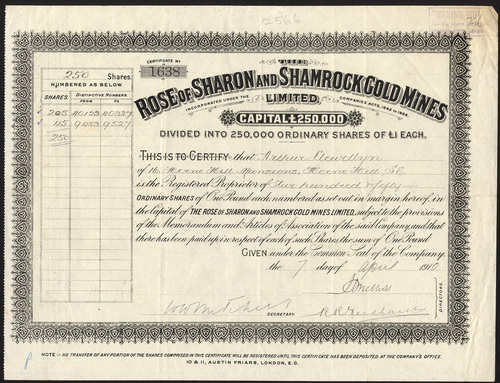 2566
CERTIFICATE No
1638
THE
ROSE OF SHARON AND SHAMROCK GOLD MINES
INCORPORATED UNDER THE COMPANIES ACTS, 1862 to 1898.
LIMITED.
CAPITAL £250,000
DIVIDED INTO 250,000 ORDINARY SHARES OF £1 EACH.
250 Shares.
NUMBERED AS BELOW.
SHARES. DISTINCTIVE NUMBERS.
FROM TO
205 40123 40327
45 9483 9527
250
THIS IS TO CERTIFY that Arthur Llewellyn
of 16 Herne Hill Mansions, Herne Hill, S.E.
is the Registered Proprietor of Two hundred & fifty
ORDINARY SHARES of One Pound each, numbered as set out in margin hereof, in
the Capital of THE ROSE OF SHARON AND SHAMROCK GOLD MINES LIMITED, subject to the provisions
of the Memorandum and Articles of Association of the said Company and that
there has been paid up in respect of each of such Shares the sum of One Pound
GIVEN under the Common Seal of the Company
the 7 day of April 1910
DIRECTORS.
SECRETARY.
NOTE:- NO TRANSFER OF ANY PORTION OF THE SHARES COMPRISED IN THIS CERTIFICATE WILL BE REGISTERED UNTIL THIS CERTIFICATE HAS BEEN DEPOSITED AT THE COMPANY'S OFFICE.
10 & 11, AUSTIN FRIARS, LONDON, E.C.